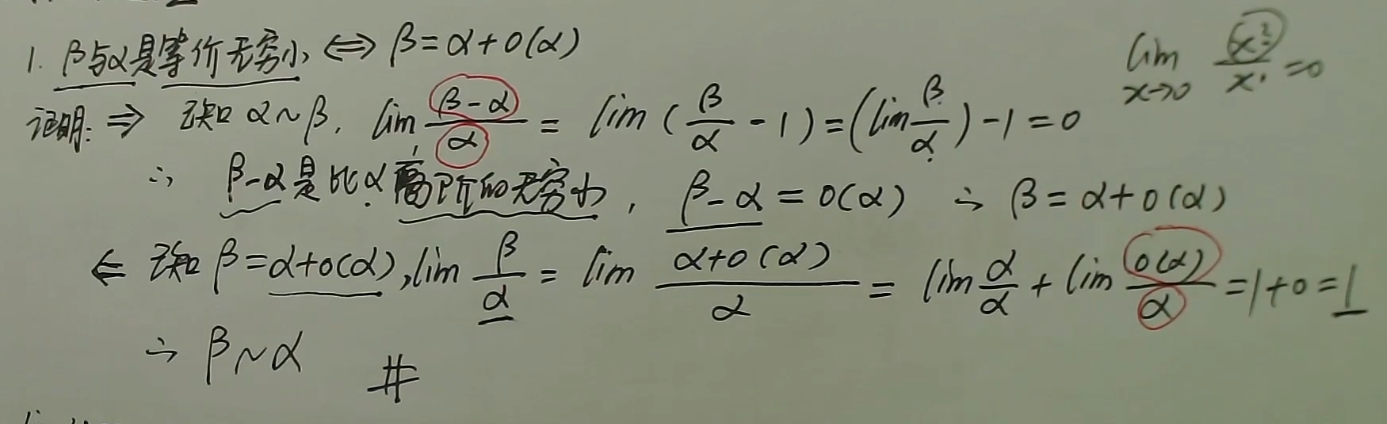 1. β与α是等价无穷小 ⇔ β=α+o(α)
lim x→0 x²/x = 0
证明: ⇒ 已知 α~β, lim (β-α)/α = lim (β/α - 1) = (lim β/α) - 1 = 0
∴ β-α是比α高阶的无穷小, β-α = o(α) ∴ β = α+o(α)
⇐ 已知 β=α+o(α), lim β/α = lim (α+o(α))/α = lim α/α + lim o(α)/α = 1+0 = 1
∴ β~α #